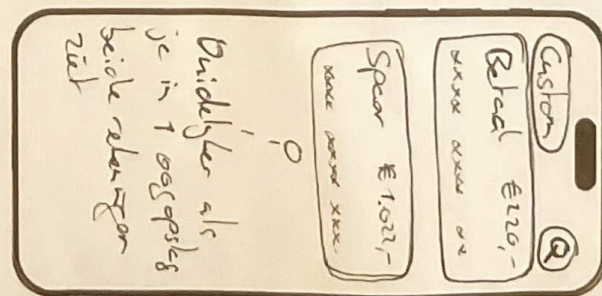 Custom
Betaal €220,-
xxxx xxxx xx
Spaar €1.022,-
xxxx xxxx xxx.
Duidelyker als
je in 1 oogopslag
beide rekeningen
ziet